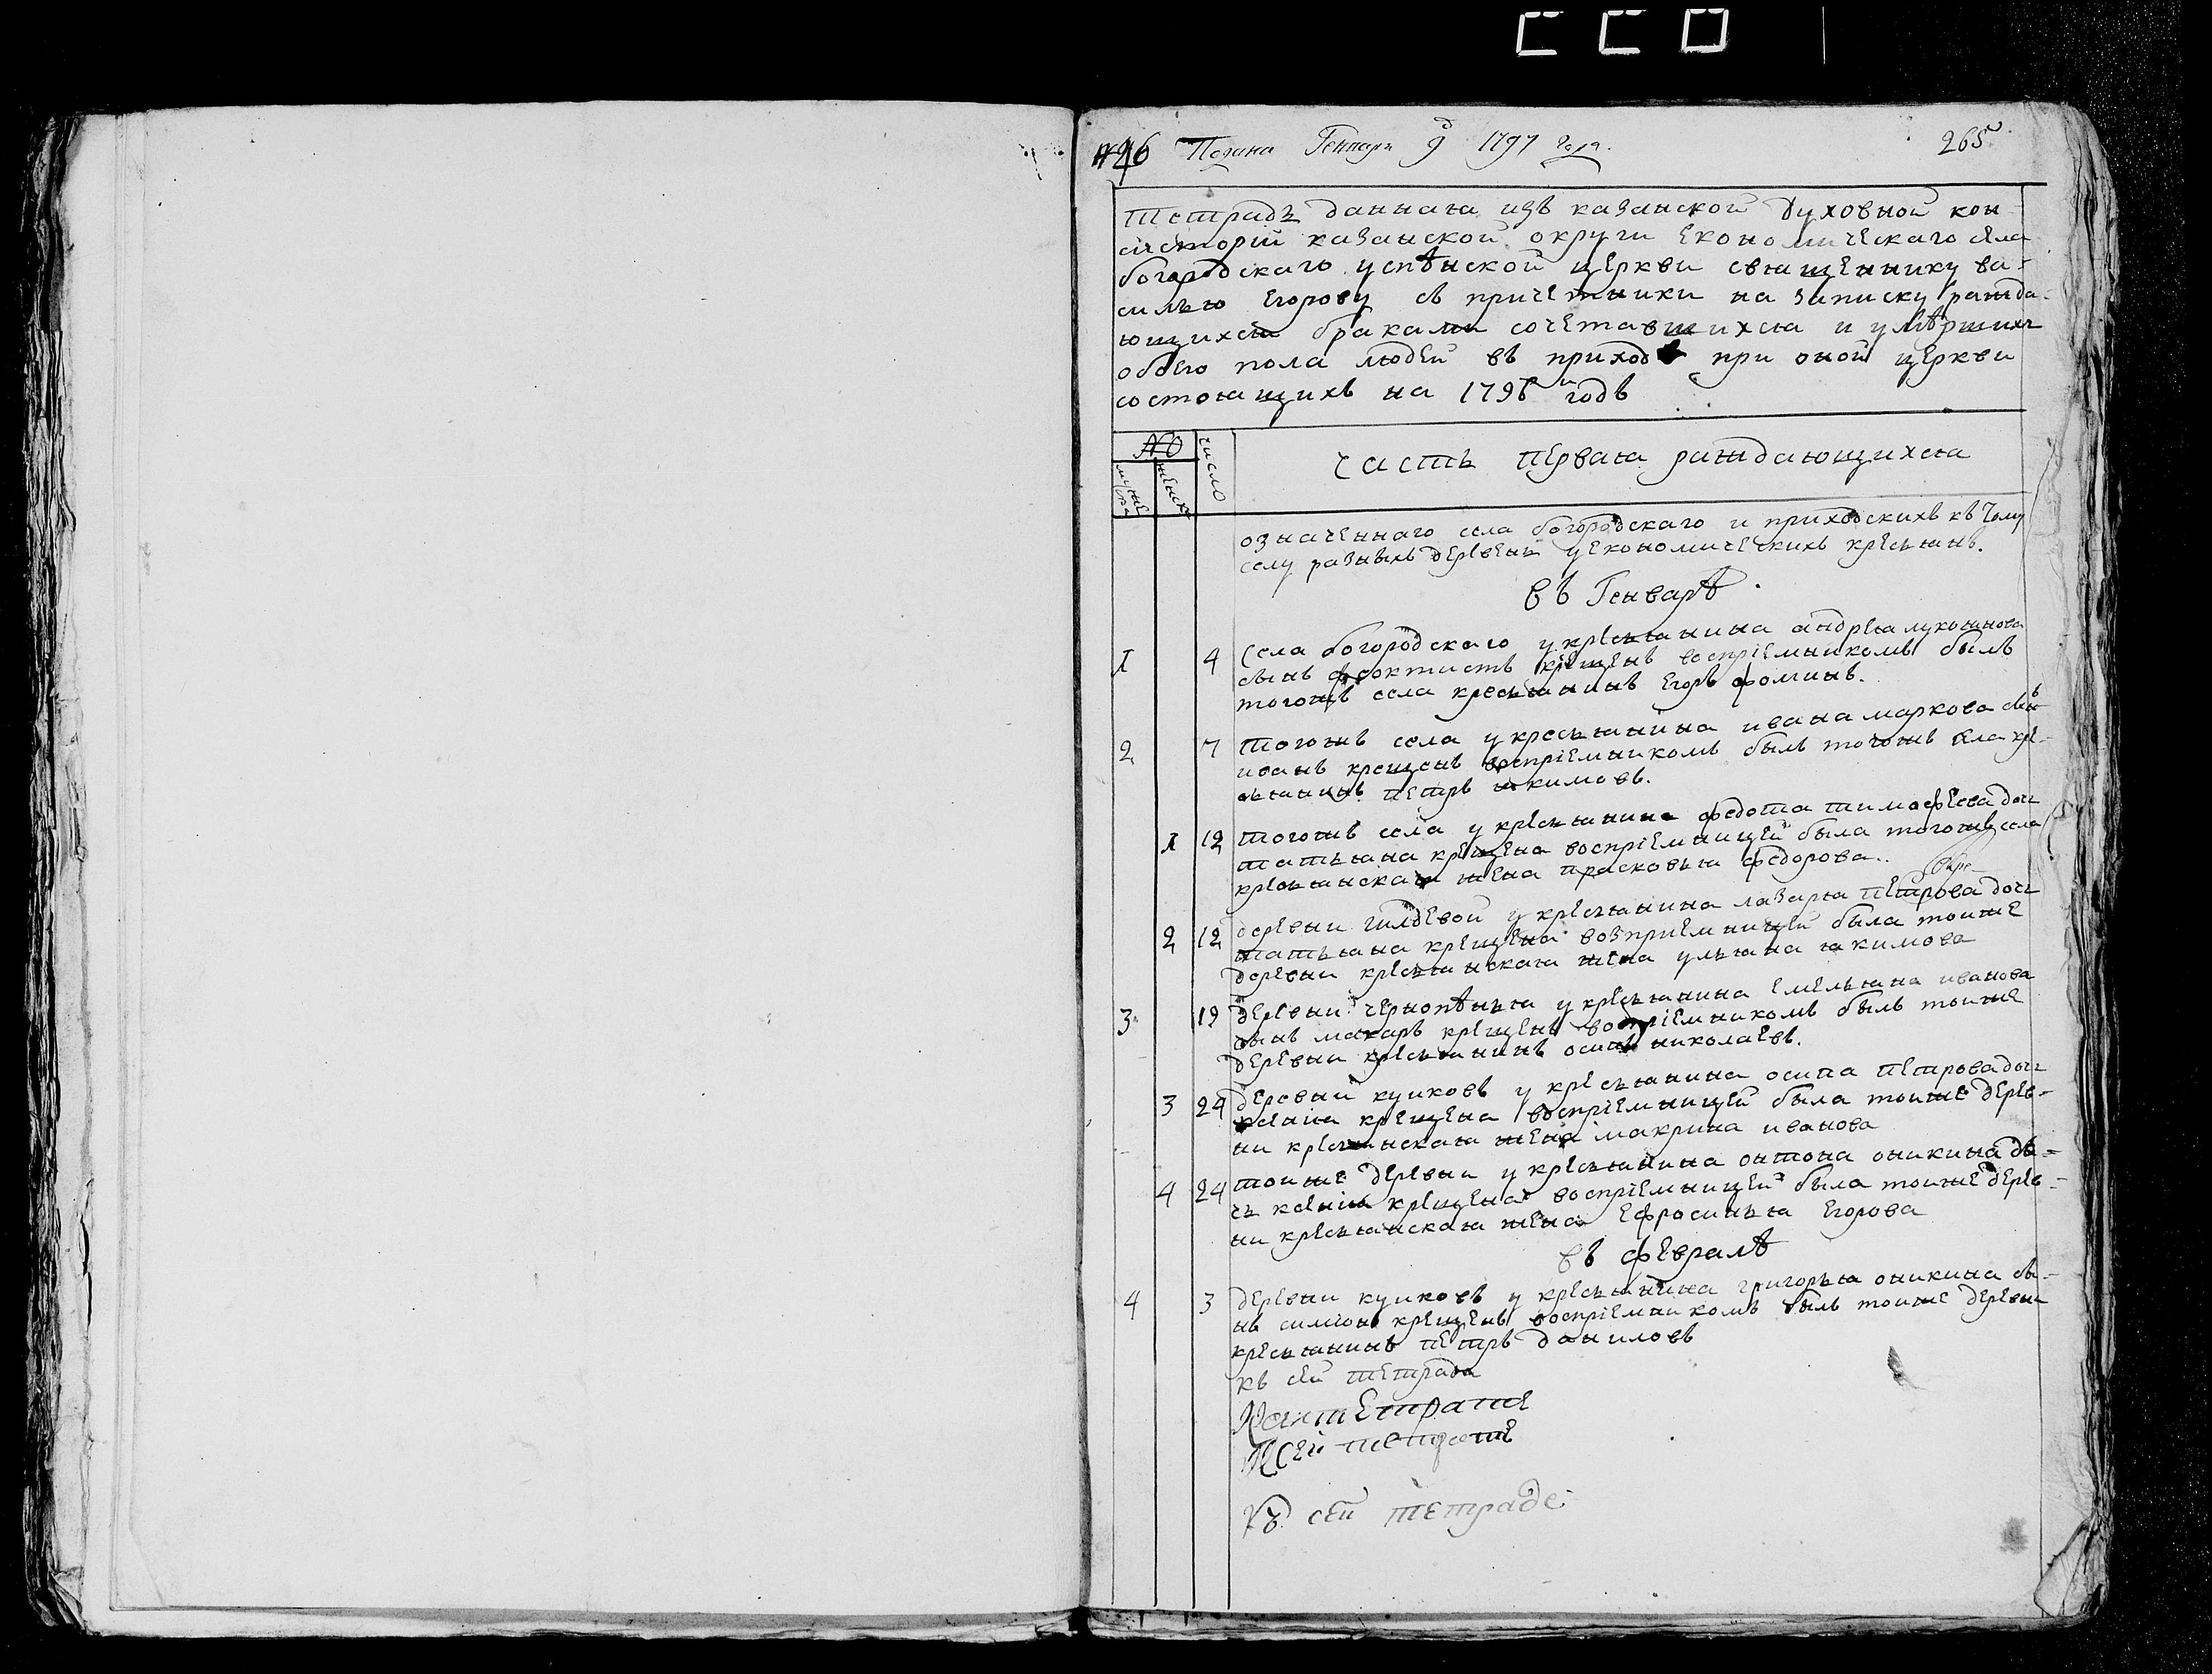 Подана Генваря 9д 1797 года.
265
тетрадь данная изъ казанской духовной кон
систории казанской округи економическаго села
богородскаго успѣнской церкви священнику ва-
силью Егорову съ причетники на записку ражда-
ющихся браками сочетавшихся и умѣрших
обоего пола людей въ приход при оной церкви
состоящихъ на 1796й годъ
№
число
мужеска
женска
часть первая раждающихся
означеннаго села богородскаго и приходскихъ къ тому
селу разныхъ деревень у економическихъ крестьянъ.
въ Генварѣ.
1 4 Села богородскаго у крестьянина андрея лукоянова
сынъ феоктистъ крещенъ восприемникомъ былъ
тогожъ села крестьянинъ егоръ фоминъ.
2 7 тогожъ села у крестьянина ивана маркова сынъ
иванъ крещенъ восприемникомъ былъ тогожъ села кре-
стьянинъ петръ якимовъ.
1 12 тогожъ села у крестьянина федота тимофеева дочь
татьяна крещена восприемницей была тогожъ села
крестьянская жена прасковья федорова.
2 12 деревни гилдевой у крестьянина лазаря петрова дочь
татьяна крещена возприемницей была тоиже
деревни крестьянская жена ульяна якимова
3 19 деревни чернопѣнья у крестьянина емельяна иванова
сынъ макаръ крещенъ восприемникомъ былъ тоиже
деревни крестьянинъ осипъ николаевъ.
3 24 деревни куюковъ у крестьянина осипа петрова дочь
ксения крещена восприемницей была тоиже дерев-
ни крестьянская жена макрина иванова
4 24 тоиже деревни у крестьянина онтона оникина до-
чь ксения крещена восприемницей была тоиже дерев-
ни крестьянская жена ефросинья Егорова
въ февралѣ
4 3 деревни куюковъ у крестьянина григорья оникина сы-
нъ симионъ крещенъ восприемникомъ былъ тоиже деревни
крестьянинъ петръ даниловъ
къ сей тетрада
Ксеи тетрате
Къ сей тетраде